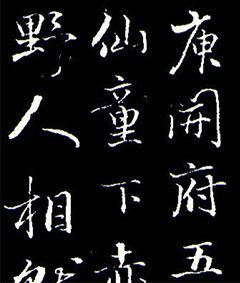 庾開府五
仙童下赤
野人相就